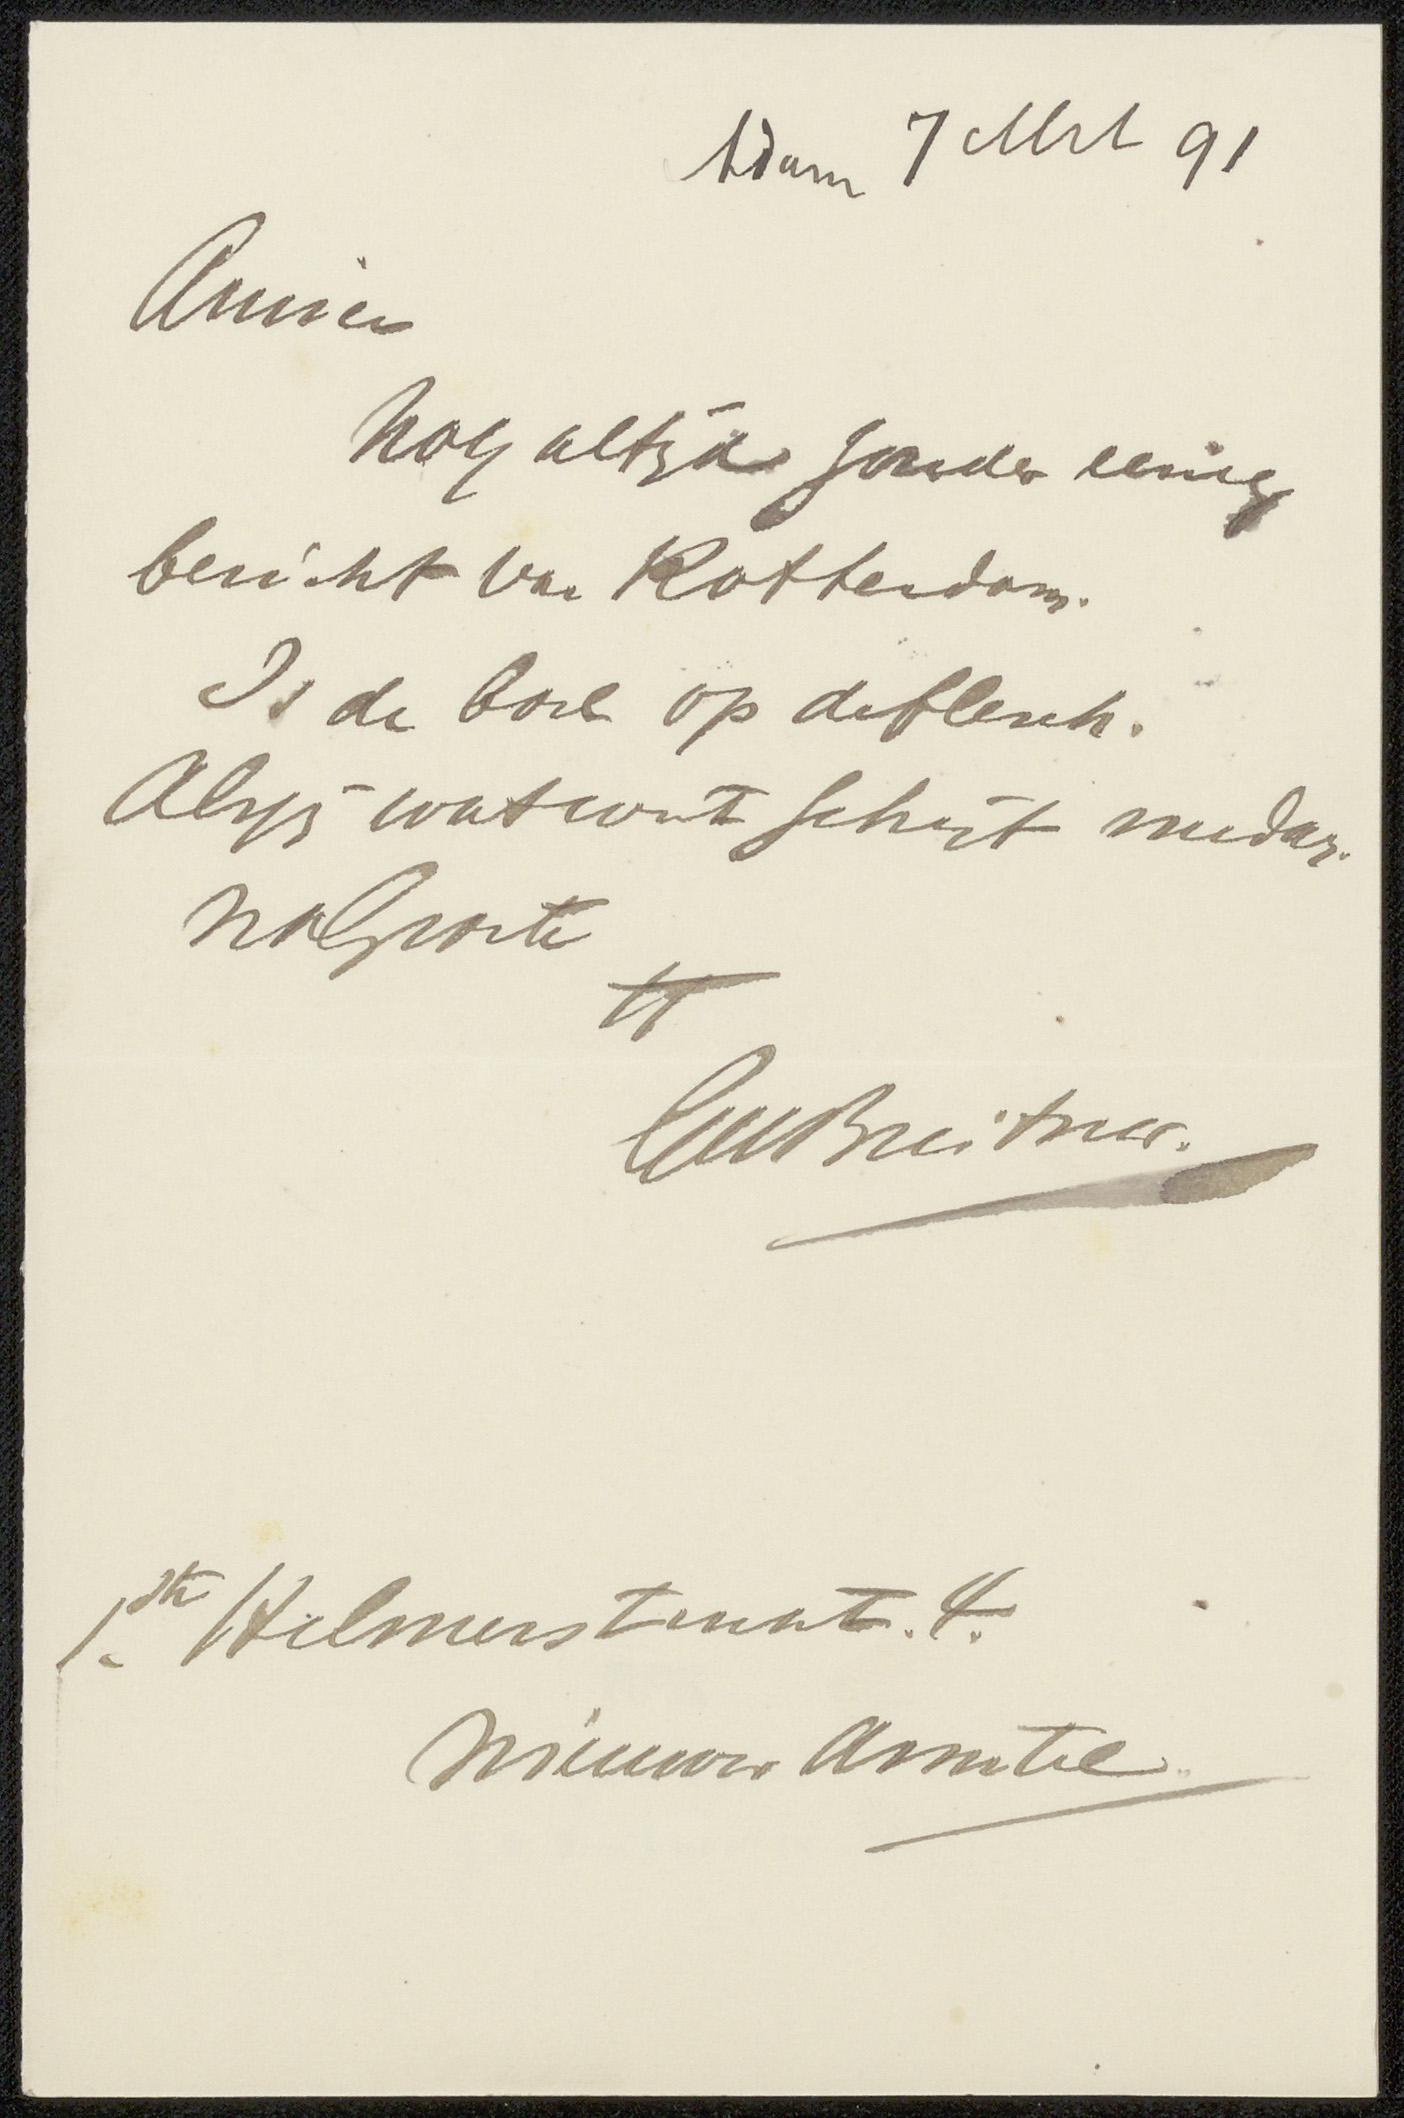 Adam 7 Mrt 91
Amice
Nog altijd zonder eenig
bericht van Rotterdam.
Is de boel op de flesch.
Als jij wat weet schrijf me dan.
Na Groete
tt
GHBreitner.
1ste Helmersstraat. 4.
Nieuwer Amstel